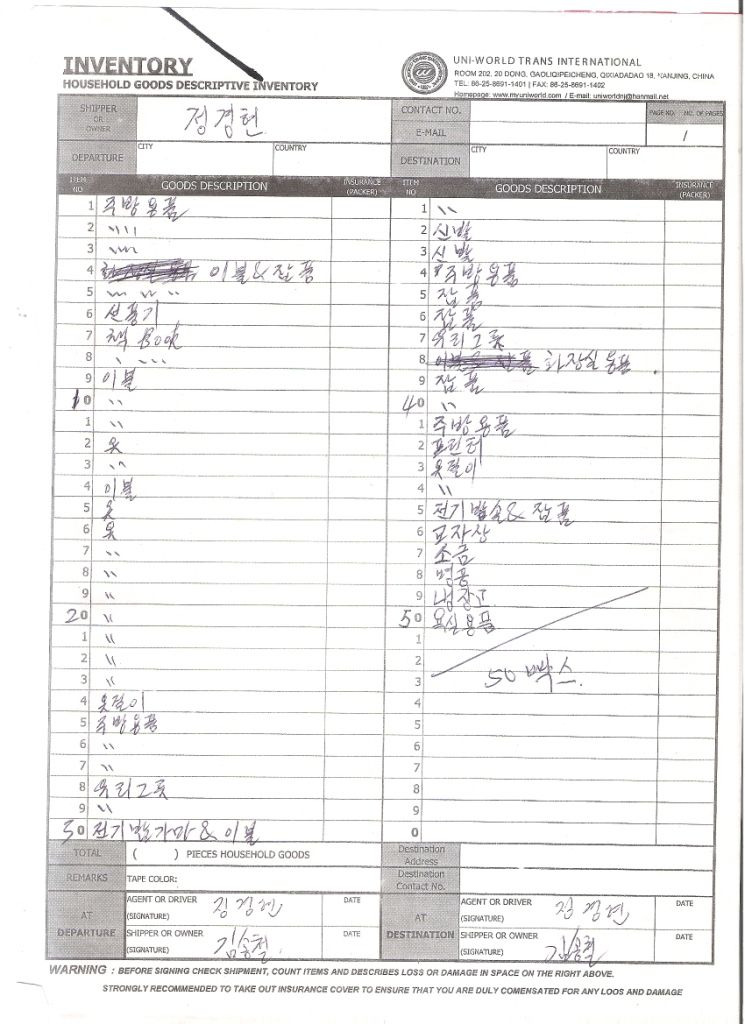 INVENTORY
HOUSEHOLD GOODS DESCRIPTIVE INVENTORY
UNI-WORLD TRANS INTERNATIONAL
ROOM 202, 20 DONG, GAOLIQIPEICHENG, QIXIADADAO 18, NANJING, CHINA
TEL: 86-25-8691-1401 | FAX: 86-25-8691-1402
Homepage: www.myuniworld.com / E-mail: uniworldnj@hanmail.net
SHIPPER OR OWNER 정경헌
CONTACT NO.
E-MAIL
PAGE NO. NO. OF PAGES
1
DEPARTURE CITY COUNTRY
DESTINATION CITY COUNTRY
ITEM NO GOODS DESCRIPTION INSURANCE (PACKER)
1 주방용품
2 〃〃
3 〃〃
4 이불 & 잡품
5 〃 〃 〃
6 선풍기
7 책 Book
8 〃 〃
9 이불
10 〃
1 〃
2 옷
3 〃
4 이불
5 옷
6 옷
7 〃
8 〃
9 〃
20 〃
1 〃
2 〃
3 〃
4 옷걸이
5 주방용품
6 〃
7 〃
8 유리그릇
9 〃
30 전기밥가마 & 이불
ITEM NO GOODS DESCRIPTION INSURANCE (PACKER)
1 〃
2 신발
3 신발
4 주방용품
5 잡품
6 잡품
7 유리그릇
8 화장실용품
9 잡품
40 〃
1 주방용품
2 프린터
3 옷걸이
4 〃
5 전기밥솥 & 잡품
6 교자상
7 소금
8 병풍
9 냉장고
50 욕실용품
1
2
3 50 박스
4
5
6
7
8
9
0
TOTAL ( ) PIECES HOUSEHOLD GOODS
REMARKS TAPE COLOR:
Destination Address
Destination Contact No.
AT DEPARTURE
AGENT OR DRIVER (SIGNATURE) DATE
SHIPPER OR OWNER (SIGNATURE) 김송철 DATE
AT DESTINATION
AGENT OR DRIVER (SIGNATURE) DATE
SHIPPER OR OWNER (SIGNATURE) 김송철 DATE
WARNING : BEFORE SIGNING CHECK SHIPMENT, COUNT ITEMS AND DESCRIBES LOSS OR DAMAGE IN SPACE ON THE RIGHT ABOVE.
STRONGLY RECOMMENDED TO TAKE OUT INSURANCE COVER TO ENSURE THAT YOU ARE DULY COMENSATED FOR ANY LOOS AND DAMAGE